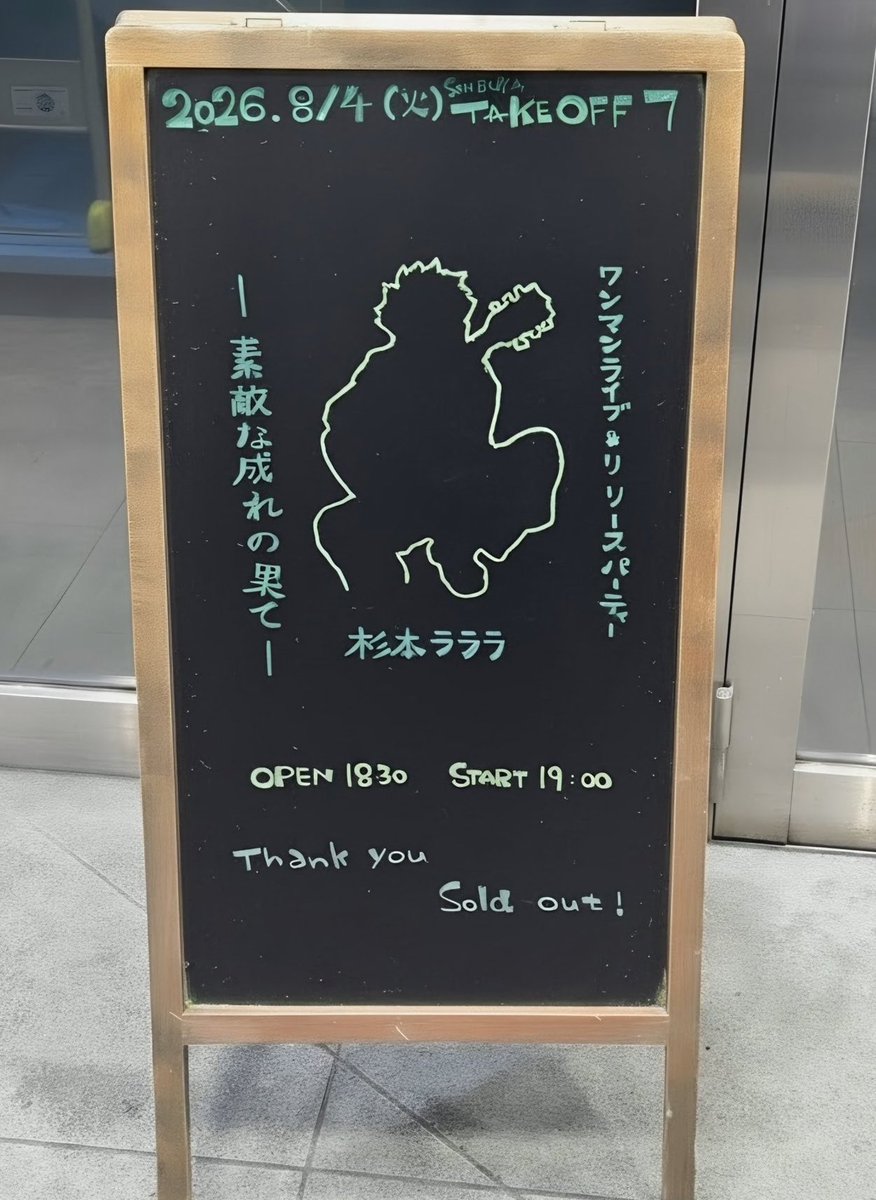 2026.8/4(火) SHIBUYA TAKEOFF 7
ワンマンライブ&リリースパーティー
ー素敵な成れの果てー
杉本ラララ
OPEN 18:30 START 19:00
Thank you
Sold out!